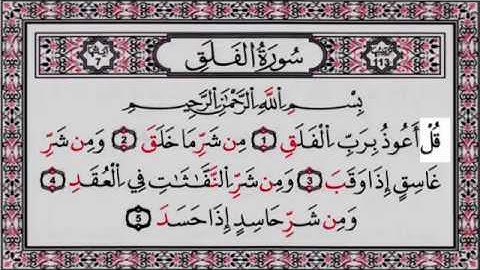 113
سُورَةُ الْفَلَقِ
7
بِسْمِ اللَّهِ الرَّحْمَٰنِ الرَّحِيمِ
قُلْ أَعُوذُ بِرَبِّ الْفَلَقِ 1 مِن شَرِّ مَا خَلَقَ 2 وَمِن شَرِّ
غَاسِقٍ إِذَا وَقَبَ 3 وَمِن شَرِّ النَّفَّاثَاتِ فِي الْعُقَدِ 4
وَمِن شَرِّ حَاسِدٍ إِذَا حَسَدَ 5